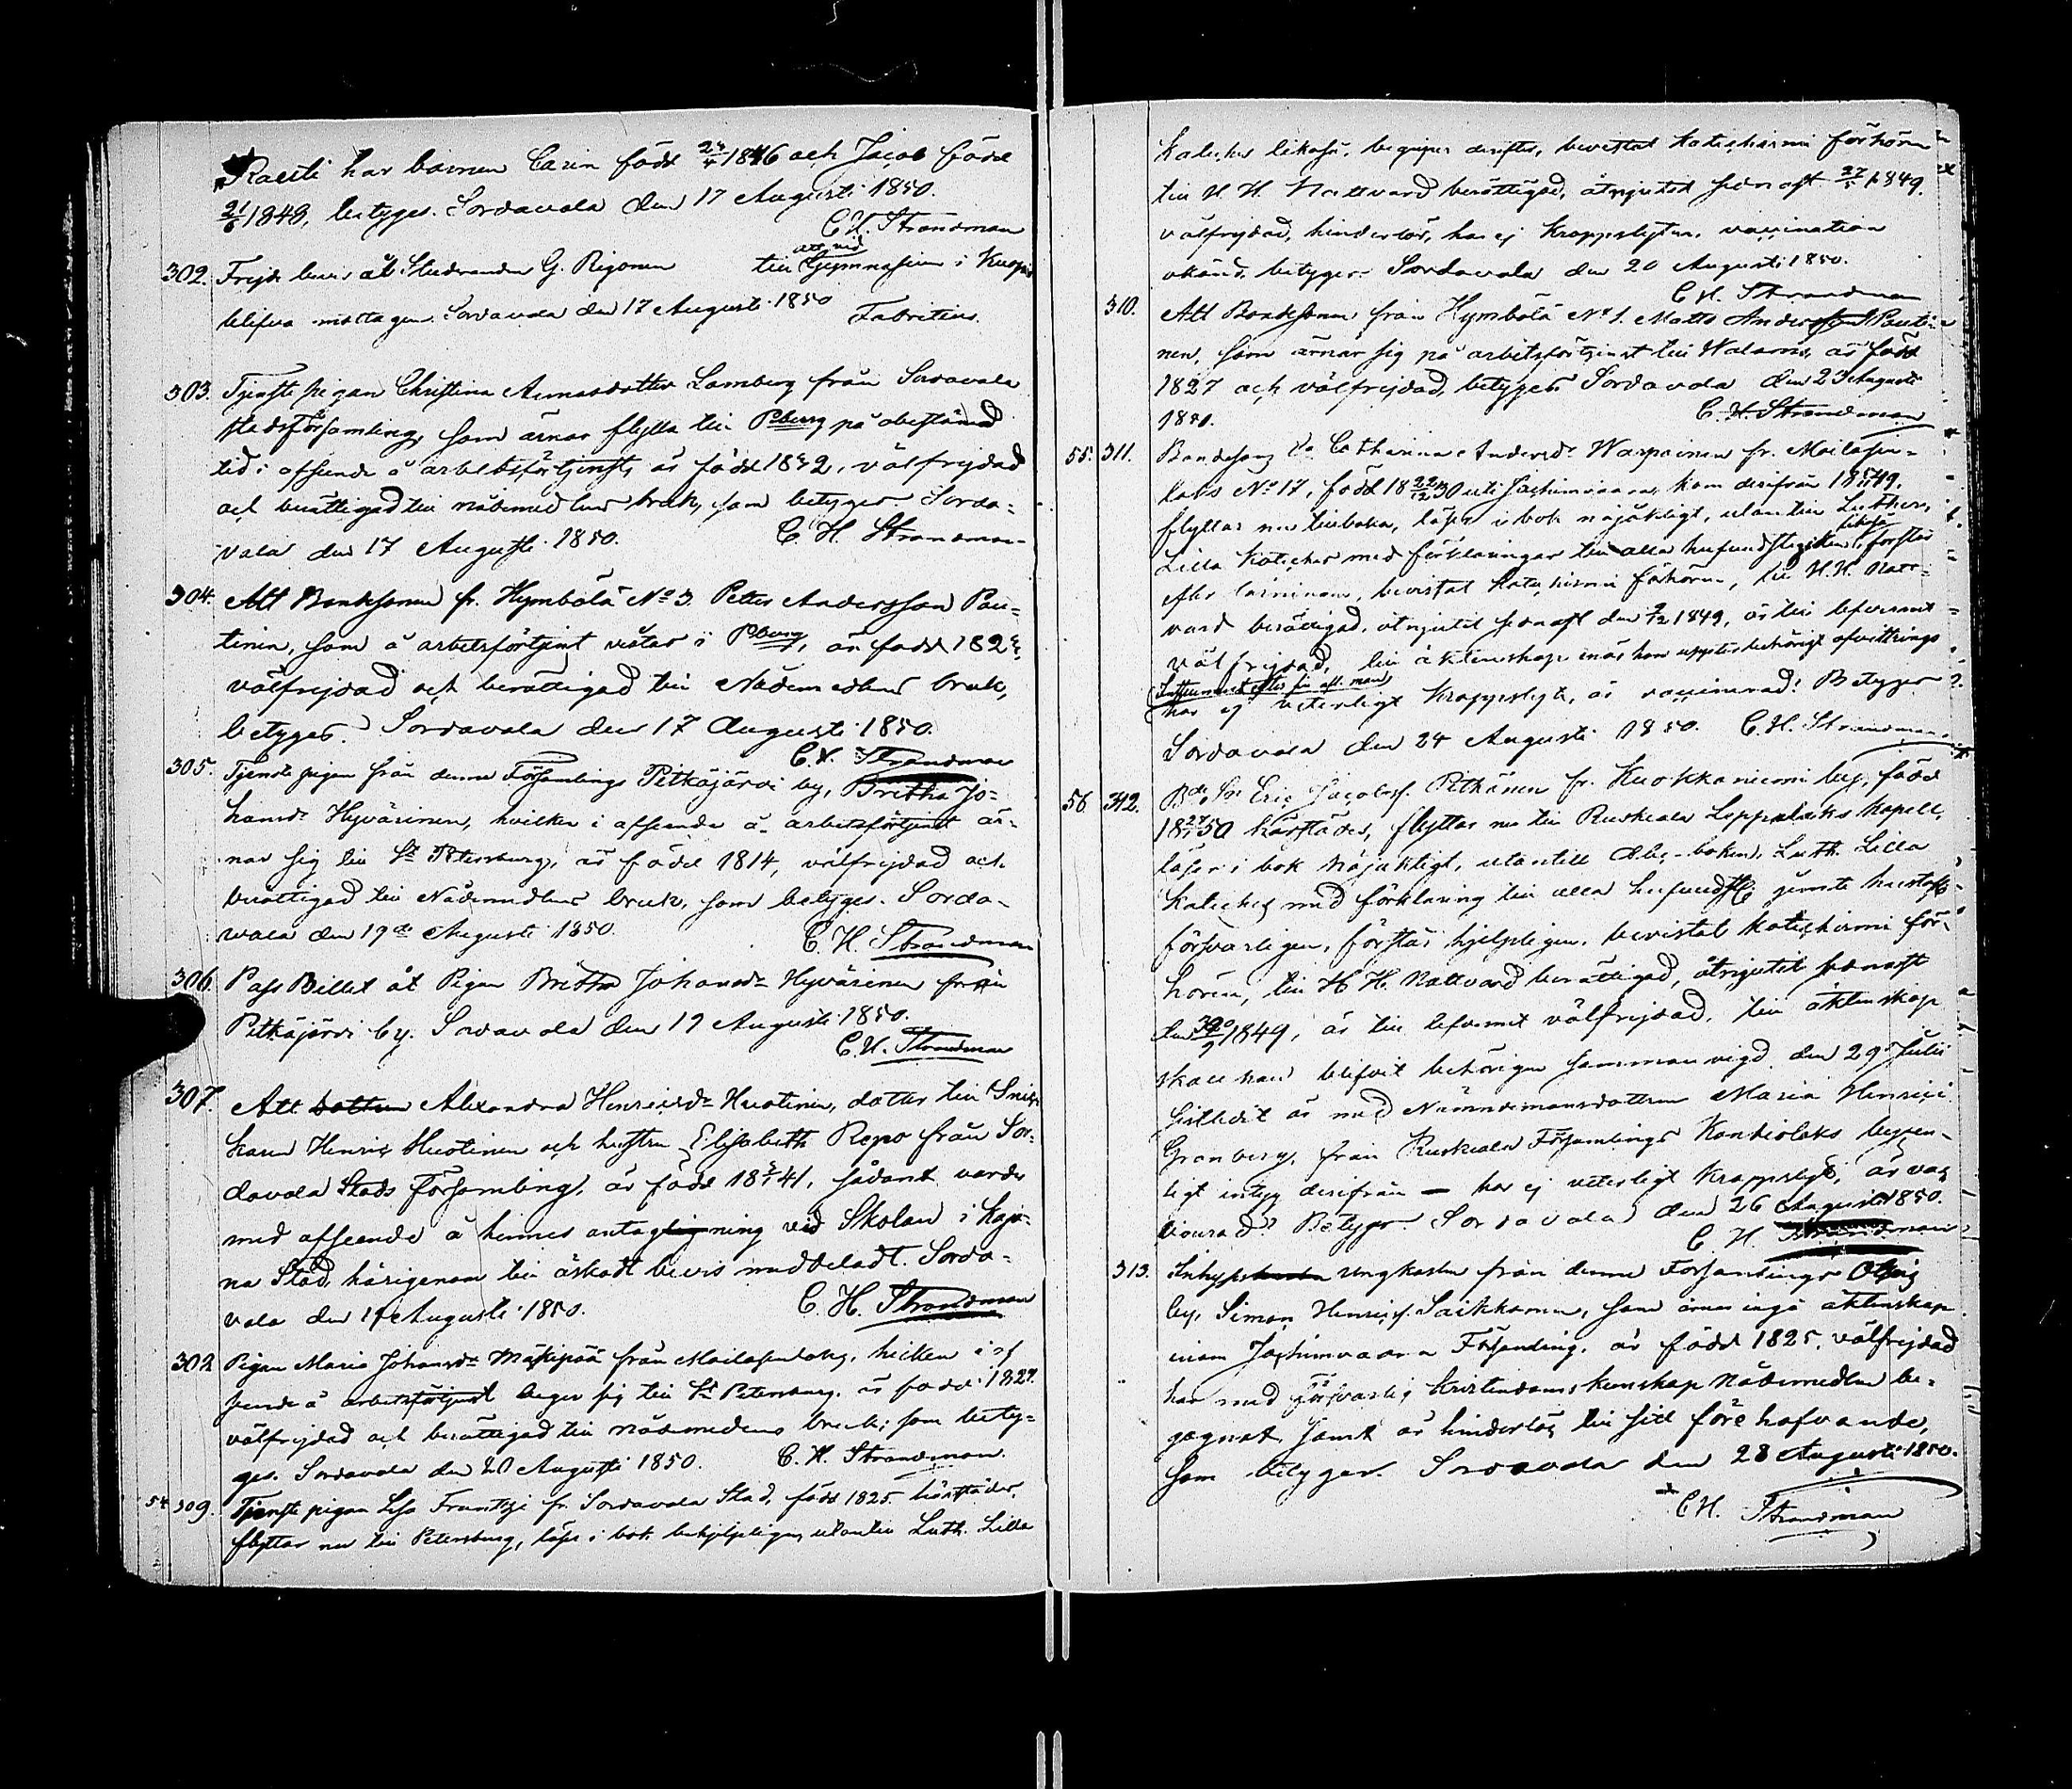 Raesti har barnen Carin född 24/4 1846 och Jacob född
21/6 1848, betyges. Sordavala den 17 Augusti 1850.
C. H. Strandman
302. Frejde bevis åt Studeranden G. Rigonen att vid till Gymnasium i Kuopio
blifva mottagen. Sordavala den 17 Augusti 1850
Fabritius.
303. Tjenste pigan Christina Annasdotter Lamberg från Sordavala
stadsförsamling, som ärnar flytta till Pburg på obestämd
tid i afseende å arbetsförtjenst, är född 1832, välfrejdad
och berättigad till nådemedlens bruk, som betyges. Sorda-
vala den 17 Augusti 1850. C. H. Strandman
304. Att Bondsonen fr. Hymbölä No 3 Petter Andersson Pau-
tinen, som å arbetsförtjenst vistas i Pburg, är född 182
välfrejdad och berättigad till Nådemedlens bruk,
betyges. Sordavala den 17 Augusti 1850.
C. H. Strandman
305. Tjenste pigan från denne Församlings Pitkäjärvi by, Bretha Jo-
hansdr Hyvärinen, hvilken i afseende å arbetsförtjenst är-
nar sig till St Petersburg, är född 1814, välfrejdad och
berättigad till Nådemedlens bruk, som betyges. Sorda-
vala den 19de Augusti 1850. C. H. Strandman
306. Pass Billet åt Pigan Bretha Johansdr Hyvärinen från
Pitkäjärvi by. Sordavala den 19 Augusti 1850.
C. H. Strandman
307. Att dottren Alexandra Henricsdr Huotinen, dotter till Snic-
karen Henric Huotinen och hustrun Elisabeth Repo från Sor-
davala Stads Församling, är född 18 41, sådant varder
med afseende å hennes antagning vid Skolan i Kaja-
na Stad, härigenom till äskadt bevis meddeladt. Sorda-
vala den 19 Augusti 1850. C. H. Strandman
302 Pigan Maria Johansdr Mäkipää från Mailasenlaks, hvilken i af
seende å arbetsförtjenst beger sig till St Petersburg, är född 1827.
välfrejdad och berättigad till nådemedlens bruk; som bety-
ges. Sordavala den 20 Augusti 1850. C. H. Strandman.
54 309. Tjenste pigan Lisa Frantsi fr. Sordavala Stad, född 1825 härstädes,
flyttar nu till Petersburg, läser i bok behjelpligen, utantill Luth. Lilla
Kateches likaså, begriper derefter, bevistat Katechismi förhören
till H. H. Nattvard berättigad, åtnjutit sednast 27/5 1849.
välfrejdad, hinderlös, har ej Kroppslyten, vaccination
okänd, betyges. Sordavala den 20 Augusti 1850.
C. H. Strandman
310. Att Bondsonen från Hymbölä No 1. Matts Andersson Pauti-
nen, som ärnar sig på arbetsförtjenst till Walamo, är född
1827 och välfrejdad, betyges Sordavala den 23 Augusti
1850. C. H. Strandman
55. 311. Catharina Andersdr Warpainen fr. Mailasen-
laks No 17, född 18 22/12 30 uti Jachimvaara, kom derifrån 18 49,
flyttar nu tillbaka, läser i bok nöjaktigt, utantill Lutheri
Lilla Kateches med förklaringar till alla hufvudstycken likaså, förstår
efter läsningen, bevistat Katechismi förhören, till H. H. Natt-
vard berättigad, åtnjutit sednast den 9/2 1849, är till lefvernet
välfrejdad, till äktenskap innan hon uppter behörigt afvittrings
Instrument efter sin afl. man,
har ej veterligt Kroppslyte, är vaccinerad: Betyges
Sordavala den 24 Augusti 1850. C. H. Strandman.
56 312. Eric Jacobss. Pitkänen fr. Kuokkaniemi by, född
18 27/ 50 härstädes, flyttar nu till Ruskeala Leppälaks Kapell,
läser i bok nöjaktigt, utantill Abc-boken, Luth. Lilla
Kateches med förklaring till alla hufvudst. jemte hustafl.
försvarligen, förstår hjelpligen, bevistat Katechismi för-
hören, till H. H. Nattvard berättigad, åtnjutit sednast
den 30/9 1849, är till lefvernet välfrejdad, till äktenskap
skall han blifvit behörigen sammanvigd den 29 Julii
sistledit år med Nämndemansdottren Maria Henrici
Granberg, från Ruskeala Församlings Kontiolaks by, en-
ligt intyg derifrån — har ej veterligt Kroppslyte, är vac-
cinerad? Betyges Sordavala den 26 Augusti 1850.
C. H. Strandman
313. Inhyses Ungkarlen från denne Församlings Otsois
by, Simon Henrics. Saikkonen, som ärnar ingå äktenskap
inom Jachimvaara Församling, är född 1825, välfrejdad
har med försvarlig kristendoms kunskap nådemedlen be-
gagnat, samt är hinderlös till sitt förehafvande,
som betyges. Sordavala den 28 Augusti 1850.
C. H. Strandman